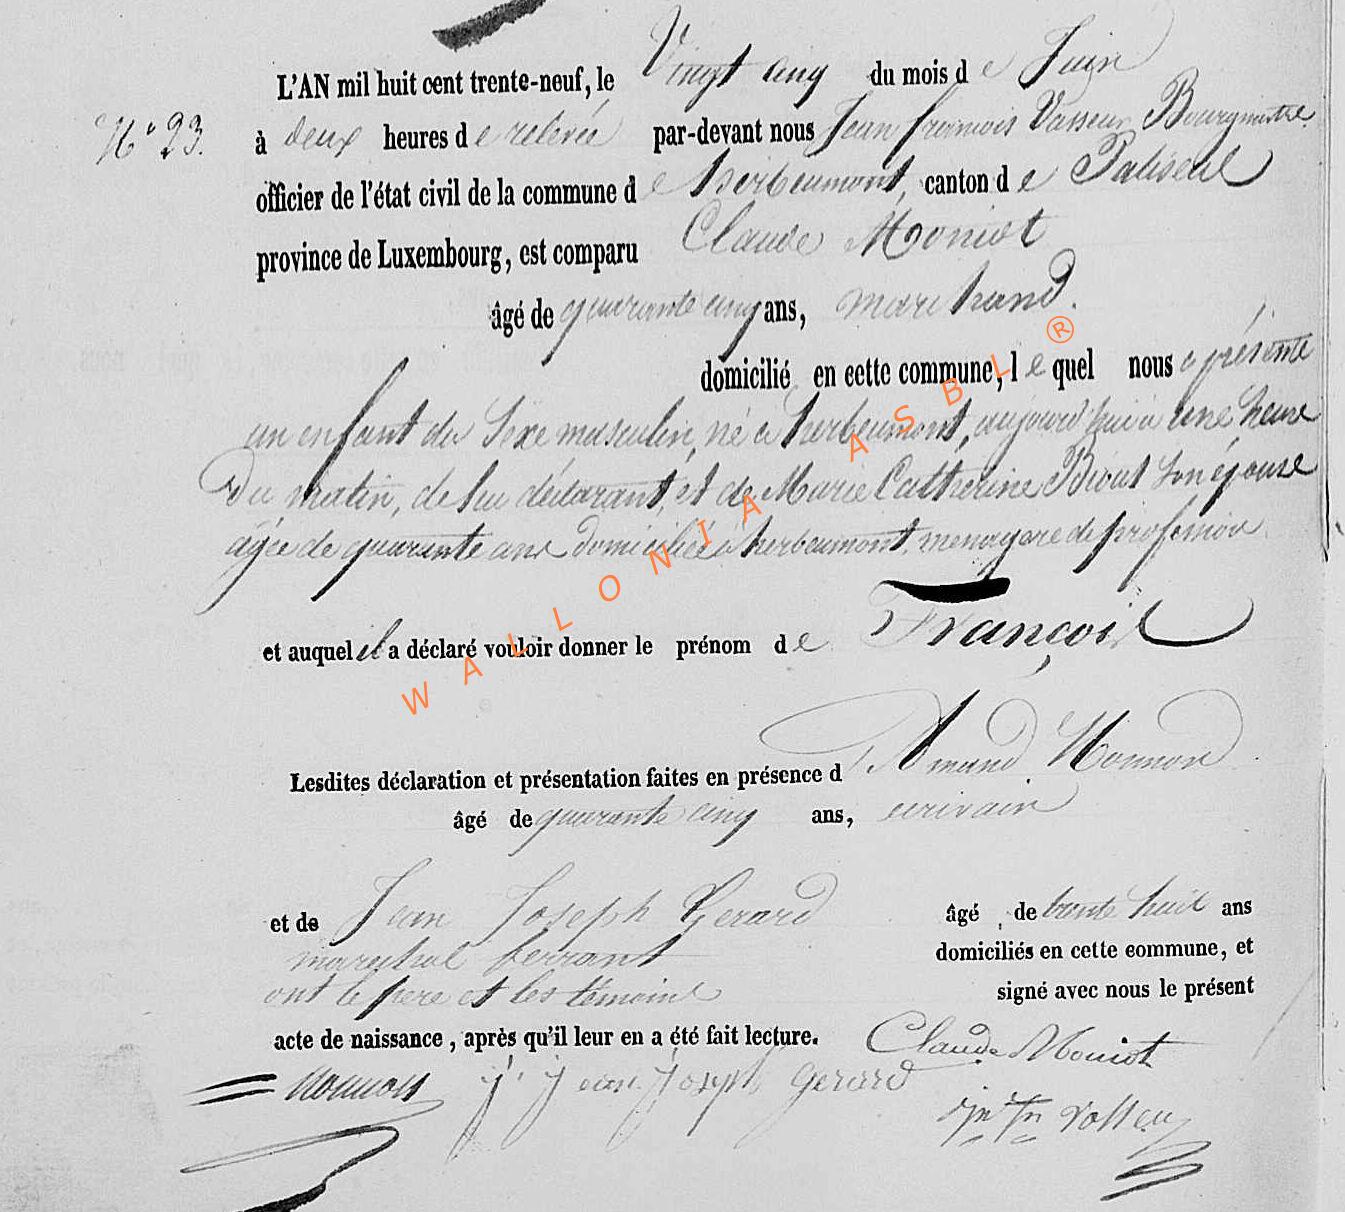 L'AN mil huit cent trente-neuf, le Vingt cinq du mois de Juin
N° 23.
à deux heures de relevée par-devant nous Jean françois Vasseur Bourgmestre
officier de l'état civil de la commune de herbeumont, canton de Paliseul
province de Luxembourg, est comparu Claude Moniot
âgé de quarante cinq ans, marchand.
domicilié en cette commune, lequel nous a présenté
un enfant du Sexe masculin, né à herbeumont, aujourd'hui à une heure
Du matin, de lui déclarant, et de Marie Catherine Son épouse
âgée de quarante ans domiciliée à herbeumont, menagere de profession
et auquel il a déclaré vouloir donner le prénom de François
Lesdites déclaration et présentation faites en présence d'Amand Nonnon
âgé de quarante cinq ans, ecrivain
et de Jean Joseph Gerard âgé de trente huit ans
marechal ferrant domiciliés en cette commune, et
ont le pere et les témoins signé avec nous le présent
acte de naissance, après qu'il leur en a été fait lecture. Claude Moniot
Nonnon J. Jean Joseph gerard
Jn Fn Vasseur
WALLONIA ASBL ®